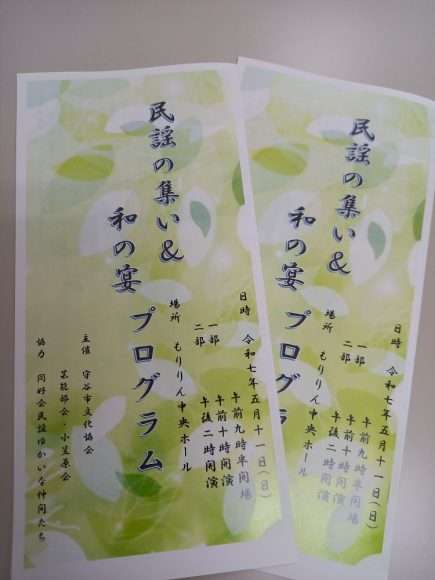 民謡の集い&
和の宴 プログラム
日時 令和七年五月十一日(日)
午前九時半開場
一部 午前十時開演
二部 午後二時開演
場所 もりりん中央ホール
主催 守谷市文化協会
芸能部会・小笠原会
協力 同好会民謡ゆかいな仲間たち
民謡の集い&
和の宴 プログラ
日時 令和七年五月十一日(日)
午前九時半開場
一部 午前十時開演
二部 午後二時開演
場所 もりりん中央ホール